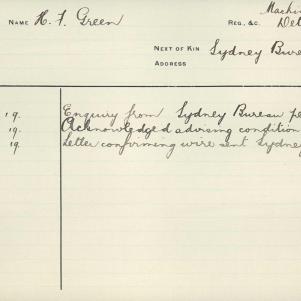 Machin
NAME H. F. Green REG., &C. Det
NEXT OF KIN Sydney Bure
ADDRESS
19. Enquiry from Sydney Bureau pe
19. Acknowledged advising condition
19. Letter confirming wire sent Sydney